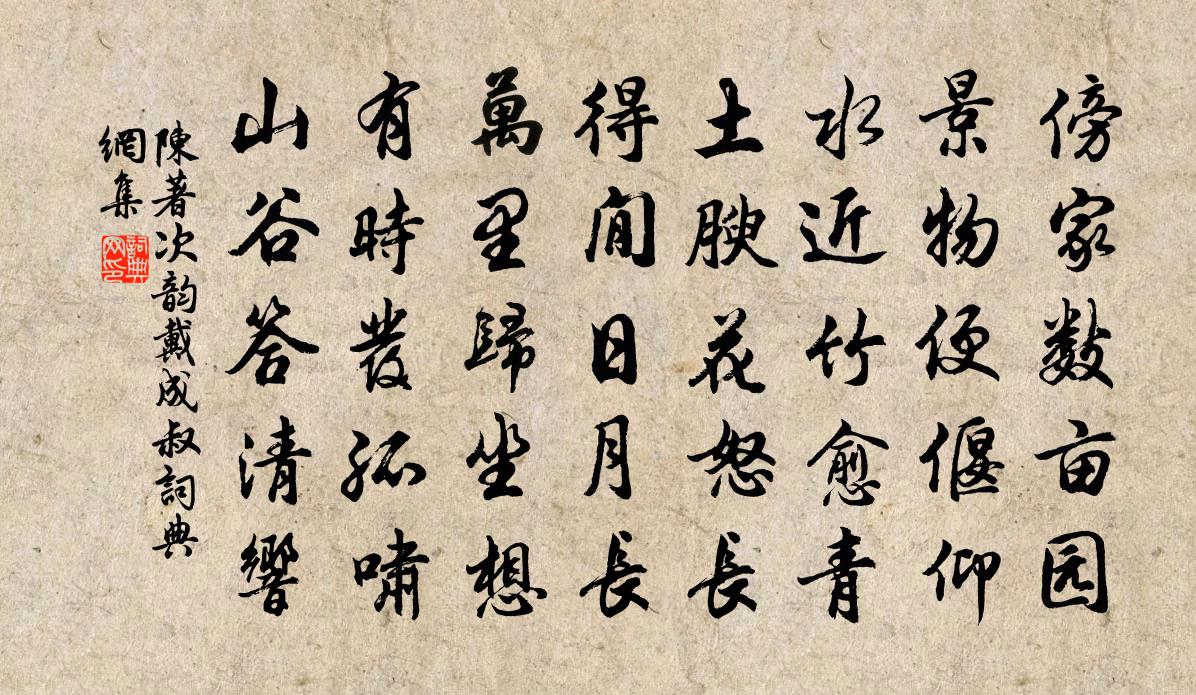 傍家数亩园
景物便偃仰
水近竹愈青
土腴花怒長
得閒日月長
萬里歸坐想
有時發孤嘯
山谷答清響
陳著次韵戴成叔詞典
網集
詞典
网印